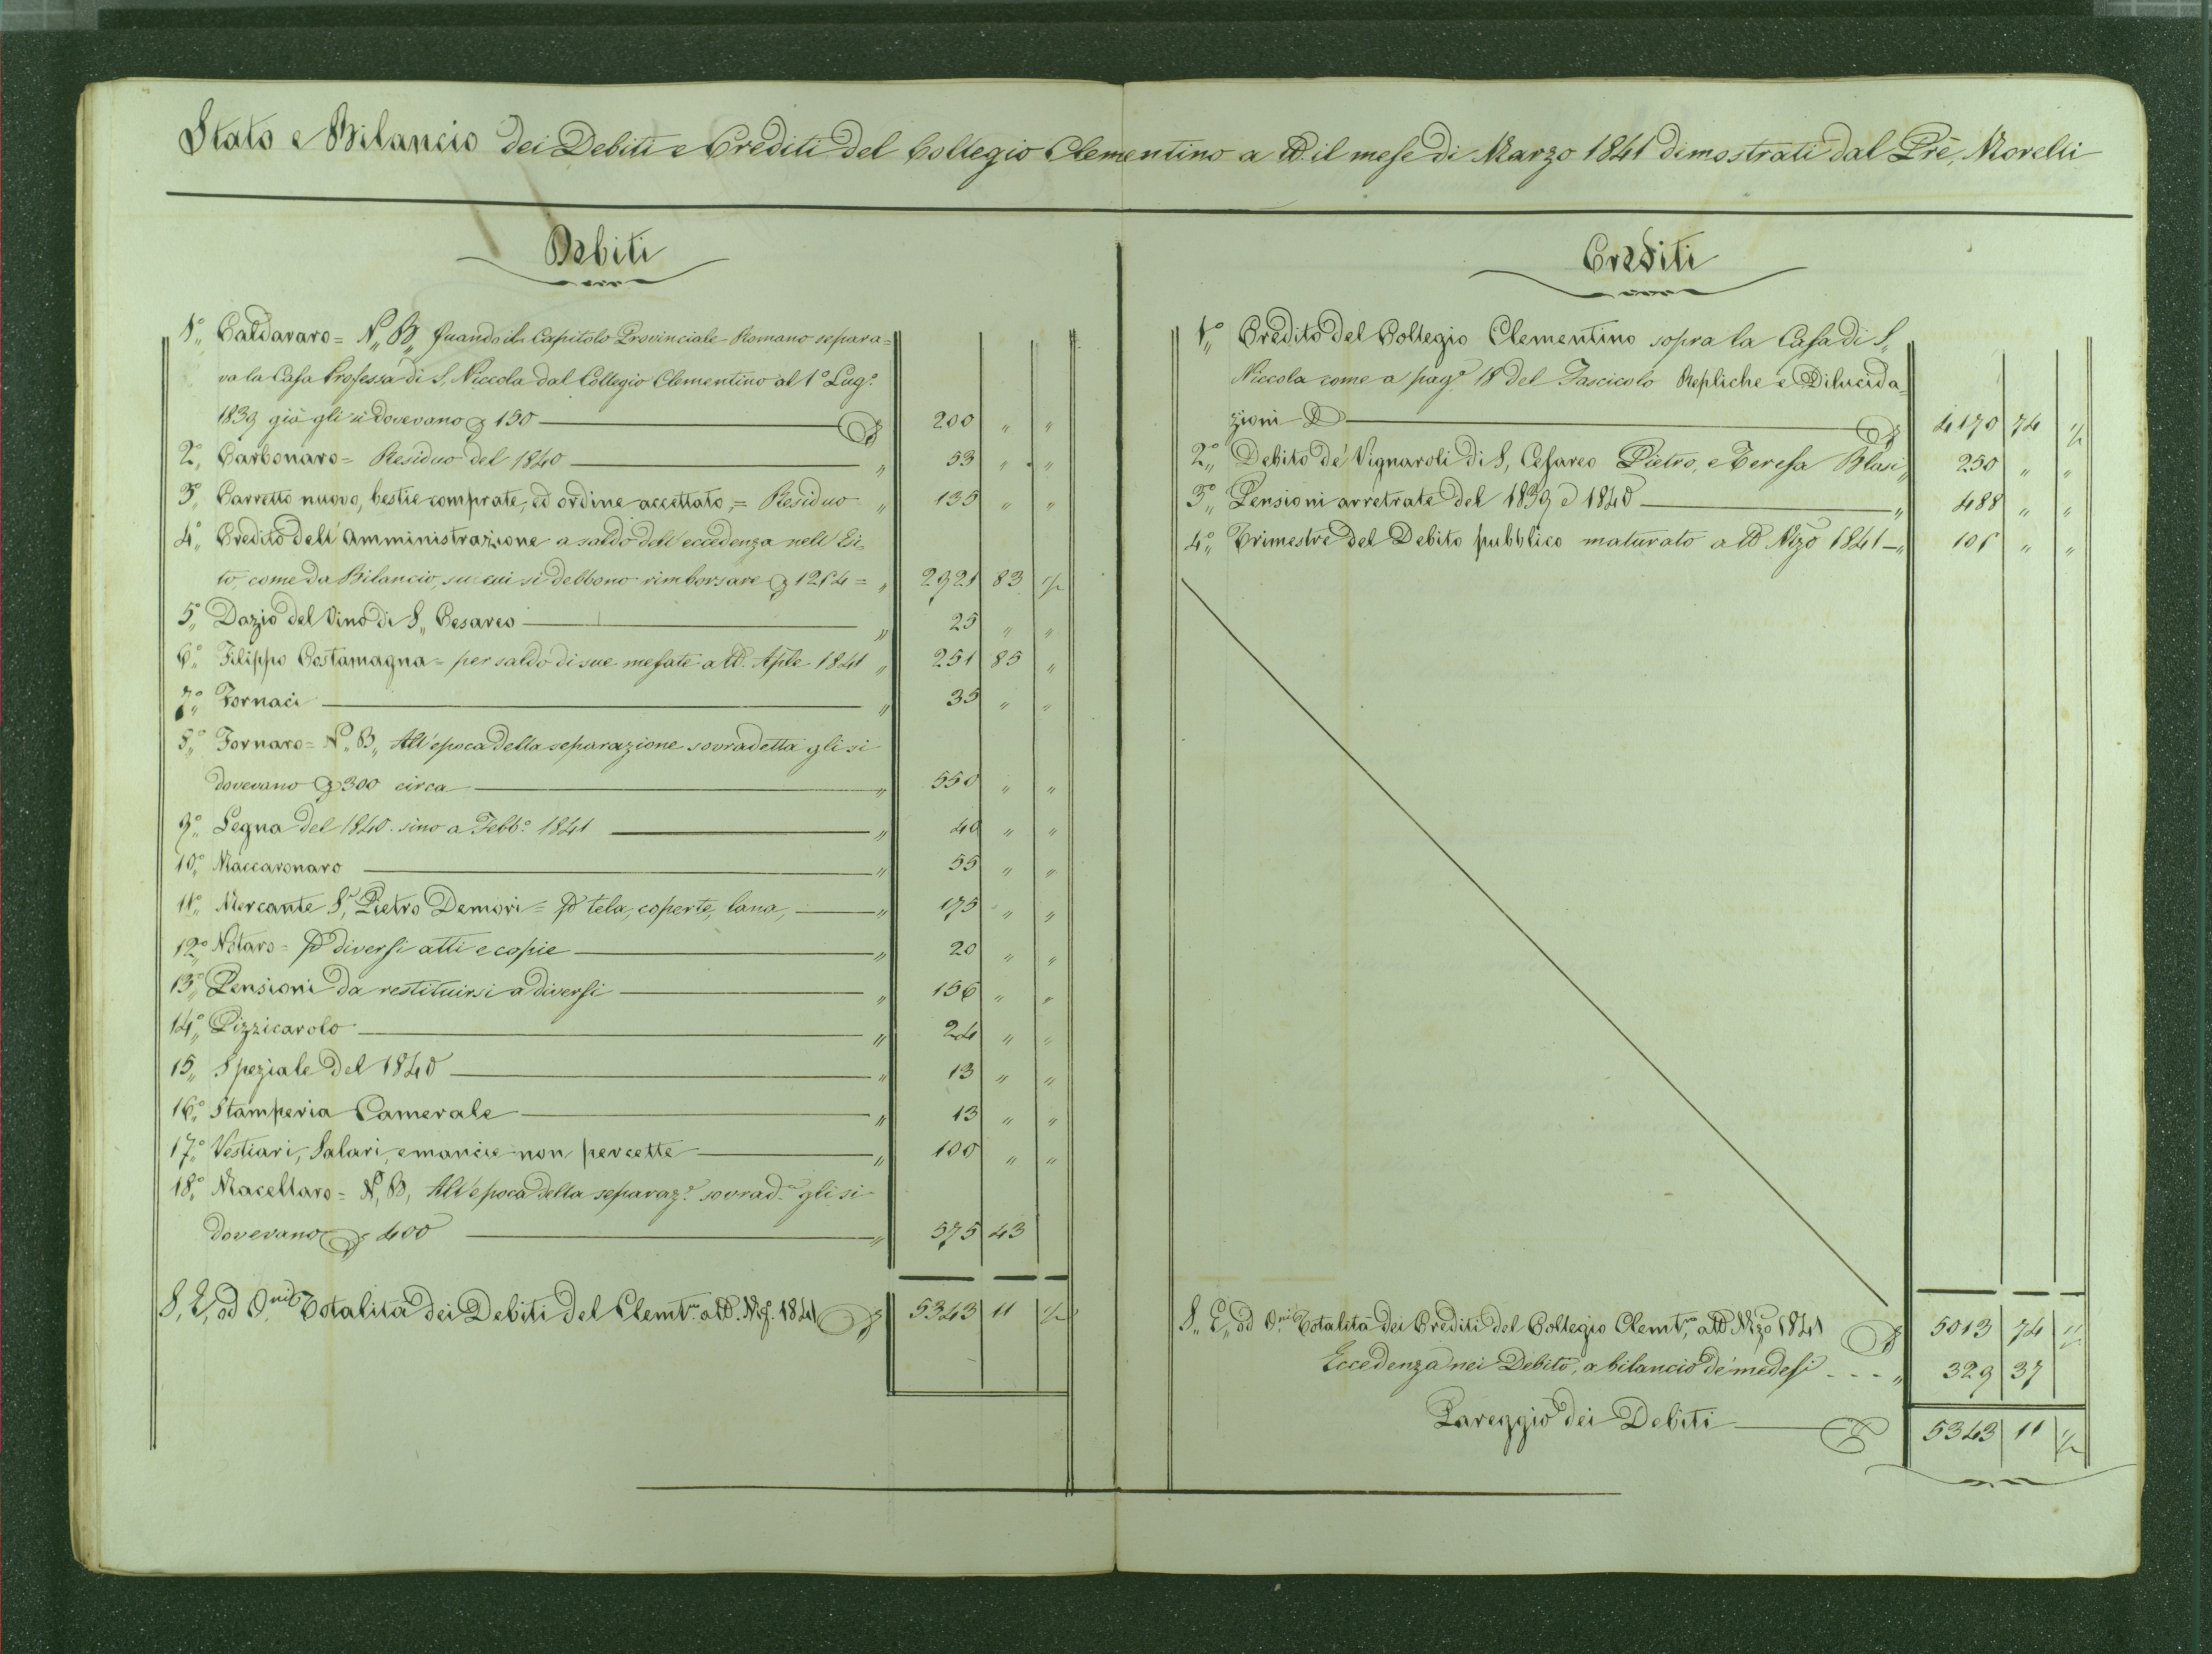 Stato e Bilancio dei Debiti e Crediti del Collegio Clementino a tto. il mese di Marzo 1841 dimostrati dal Pre. Morelli
Debiti
1° Caldararo = N. B. Quando il Capitolo Provinciale Romano separa=
va la Casa Professa di S. Niccola dal Collegio Clementino al 1° Lug.°
1839 già gli si dovevano 150 200 " "
2° Carbonaro = Residuo del 1840 " 53 " "
3° Carretto nuovo, bestie comprate, ed ordine accettato, = Residuo " 135 " "
4° Credito dell'Amministrazione a saldo dell'eccedenza nell'Esi=
to, come da Bilancio, su cui si debbono rimborsare 1254 = " 2921 83 ½
5° Dazio del Vino di S. Cesareo " 25 " "
6° Filippo Costamagna = per saldo di sue mesate a tto. Aple 1841 " 251 85 "
7° Fornaci " 35 " "
8° Fornaro = N. B. All'epoca della separazione sovradetta gli si
dovevano 300 circa " 550 " "
9° Legna del 1840. sino a Febb.° 1841 " 40 " "
10° Maccaronaro " 55 " "
11° Mercante S.r Pietro Demori = p tela, coperte, lana, " 175 " "
12° Notaro = p diversi atti e copie " 20 " "
13° Pensioni da restituirsi a diversi " 156 " "
14° Pizzicarolo " 24 " "
15 Speziale del 1840 " 13 " "
16° Stamperia Camerale " 13 " "
17° Vestiari, Salari, e mancie non percette " 100 " "
18° Macellaro = N. B. All'epoca della separaz.e sovrad.a gli si
dovevano 400 " 575 43
S. E. ed O. Totalità dei Debiti del Clemt.no a tto. 1841 5343 11 ½
Crediti
1° Credito del Collegio Clementino sopra la Casa di S.
Niccola come a pag.e 18 del Fascicolo Repliche e Dilucida=
zioni 4170 74 ½
2° Debito de' Vignaroli di S. Cesareo Pietro, e Teresa Blasi " 250 " "
3° Pensioni arretrate del 1839 e 1840 " 488 " "
4° Trimestre del Debito pubblico maturato a tto Mzo 1841 " 105 " "
S. E. ed O. Totalità dei Crediti del Collegio Clemt.no a tto Mzo 1841 5013 74 ½
Eccedenza nei Debiti, a bilancio de' medesi - - - " 329 37
Pareggio dei Debiti 5343 11 ½